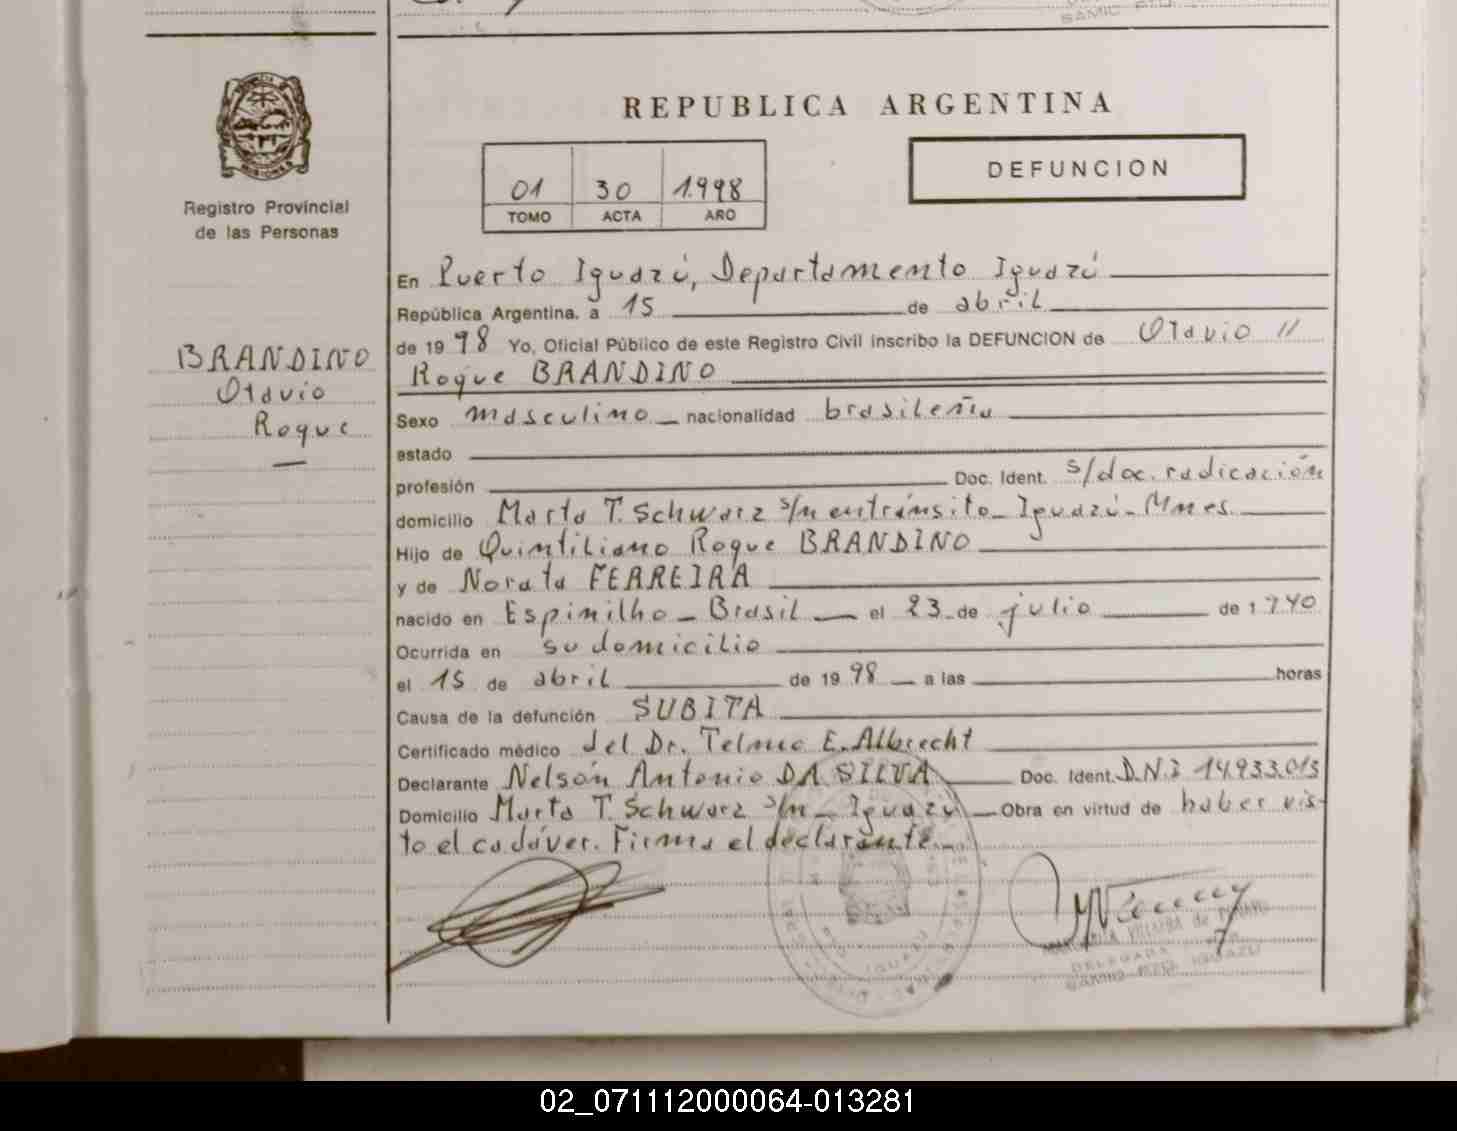 REPUBLICA ARGENTINA
DEFUNCION
01 30 1.998
TOMO ACTA AÑO
MISIONES
Registro Provincial
de las Personas
BRANDINO
Otavio
Roque
En Puerto Iguazú, Departamento Iguazú
República Argentina, a 15 de abril
de 1998 Yo, Oficial Público de este Registro Civil inscribo la DEFUNCION de Otavio //
Roque BRANDINO
Sexo masculino nacionalidad brasileña
estado
profesión Doc. Ident. s/doc. radicación
domicilio Marta T. Schwarz s/n en tránsito - Iguazú - Mnes.
Hijo de Quintiliano Roque BRANDINO
y de Norata FERREIRA
nacido en Espinilho - Brasil el 23 de julio de 1940
Ocurrida en su domicilio
el 15 de abril de 1998 a las horas
Causa de la defunción SUBITA
Certificado médico del Dr. Telmo E. Albrecht
Declarante Nelson Antonio DA SILVA Doc. Ident. D.N.I 14.933.013
Domicilio Marta T. Schwarz s/n - Iguazú Obra en virtud de haber vis-
to el cadáver. Firma el declarante.
VILLALBA de
DELEGADA
SAMIC PTO. IGUAZU
02_071112000064-013281